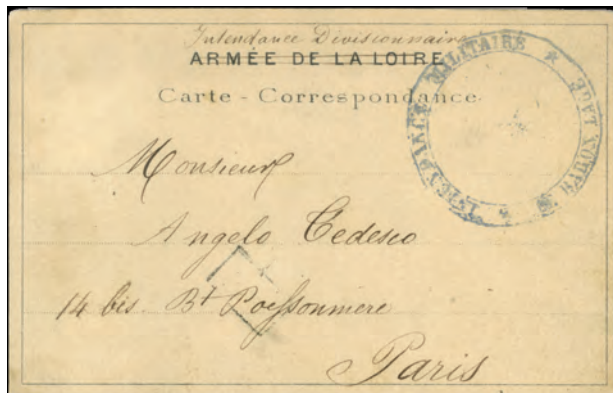 Intendance Divisionnaire
ARMÉE DE LA LOIRE
Carte-Correspondance
INTENDANCE MILITAIRE *
Monsieur
Angelo Tedesco
14 bis. Bt Poissonniere
Paris